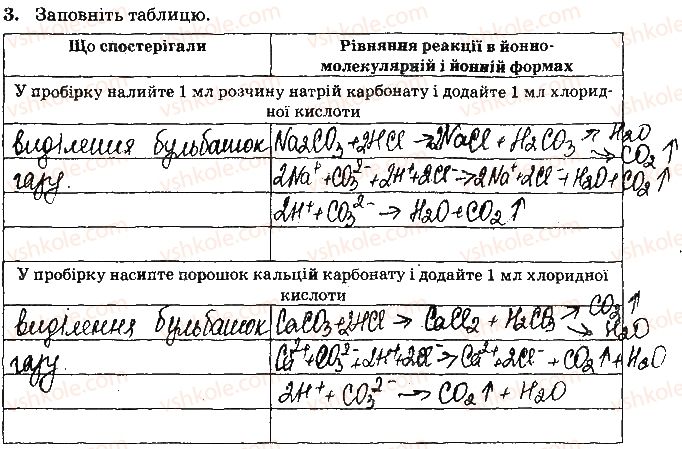 3. Заповніть таблицю.
Що спостерігали
Рівняння реакції в йонно-
молекулярній і йонній формах
У пробірку налийте 1 мл розчину натрій карбонату і додайте 1 мл хлорид-
ної кислоти
виділення бульбашок
газу.
Na2CO3+2HCl → 2NaCl + H2CO3 ↗ H2O
↘ CO2↑
2Na⁺+CO3²⁻+2H⁺+2Cl⁻→2Na⁺+2Cl⁻+H2O+CO2↑
2H⁺+CO3²⁻ → H2O+CO2↑
У пробірку насипте порошок кальцій карбонату і додайте 1 мл хлоридної
кислоти
виділення бульбашок
газу.
CaCO3+2HCl → CaCl2 + H2CO3 ↗ CO2↑
↘ H2O
Ca²⁺+CO3²⁻+2H⁺+2Cl⁻→Ca²⁺+2Cl⁻+CO2↑+H2O
2H⁺+CO3²⁻ → CO2↑ + H2O
vshkole.com